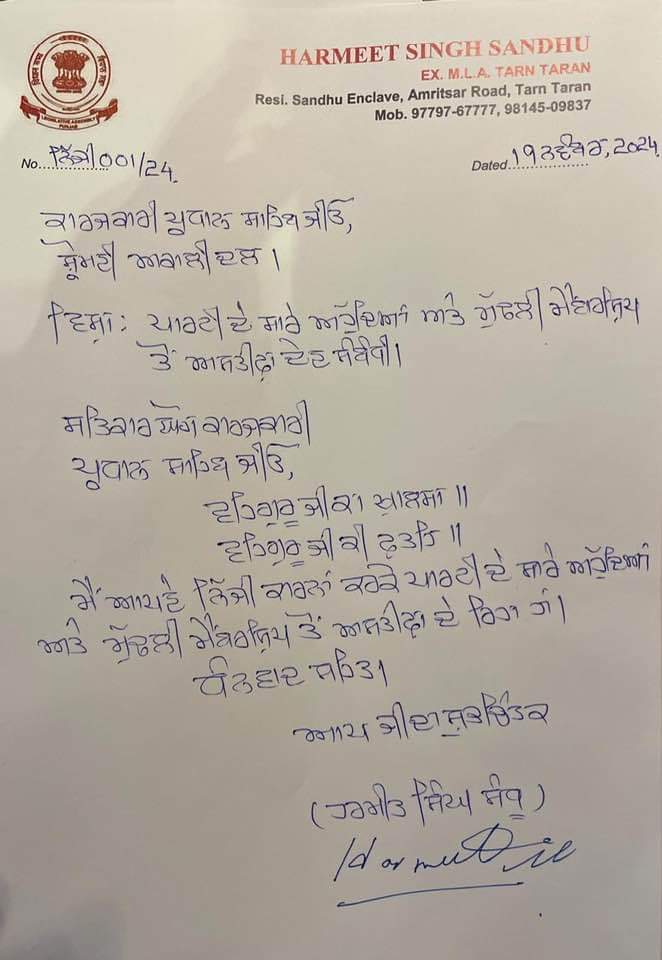 HARMEET SINGH SANDHU
EX. M.L.A. TARN TARAN
Resi. Sandhu Enclave, Amritsar Road, Tarn Taran
Mob. 97797-67777, 98145-09837
LEGISLATIVE ASSEMBLY
PUNJAB
No. ਨਿੱਜੀ 001/24
Dated 19 ਨਵੰਬਰ, 2024
ਕਾਰਜਕਾਰੀ ਪ੍ਰਧਾਨ ਸਾਹਿਬ ਜੀਓ,
ਸ਼੍ਰੋਮਣੀ ਅਕਾਲੀ ਦਲ।
ਵਿਸ਼ਾ: ਪਾਰਟੀ ਦੇ ਸਾਰੇ ਅਹੁੱਦਿਆਂ ਅਤੇ ਮੁੱਢਲੀ ਮੈਂਬਰਸ਼ਿਪ
ਤੋਂ ਅਸਤੀਫ਼ਾ ਦੇਣ ਸੰਬੰਧੀ।
ਸਤਿਕਾਰ ਯੋਗ ਕਾਰਜਕਾਰੀ
ਪ੍ਰਧਾਨ ਸਾਹਿਬ ਜੀਓ,
ਵਾਹਿਗੁਰੂ ਜੀ ਕਾ ਖ਼ਾਲਸਾ॥
ਵਾਹਿਗੁਰੂ ਜੀ ਕੀ ਫ਼ਤਹਿ॥
ਮੈਂ ਆਪਣੇ ਨਿੱਜੀ ਕਾਰਨਾਂ ਕਰਕੇ ਪਾਰਟੀ ਦੇ ਸਾਰੇ ਅਹੁੱਦਿਆਂ
ਅਤੇ ਮੁੱਢਲੀ ਮੈਂਬਰਸ਼ਿਪ ਤੋਂ ਅਸਤੀਫ਼ਾ ਦੇ ਰਿਹਾ ਹਾਂ।
ਧੰਨਵਾਦ ਸਹਿਤ।
ਆਪ ਜੀ ਦਾ ਸ਼ੁਭਚਿੰਤਕ
(ਹਰਮੀਤ ਸਿੰਘ ਸੰਧੂ)
Harmeet